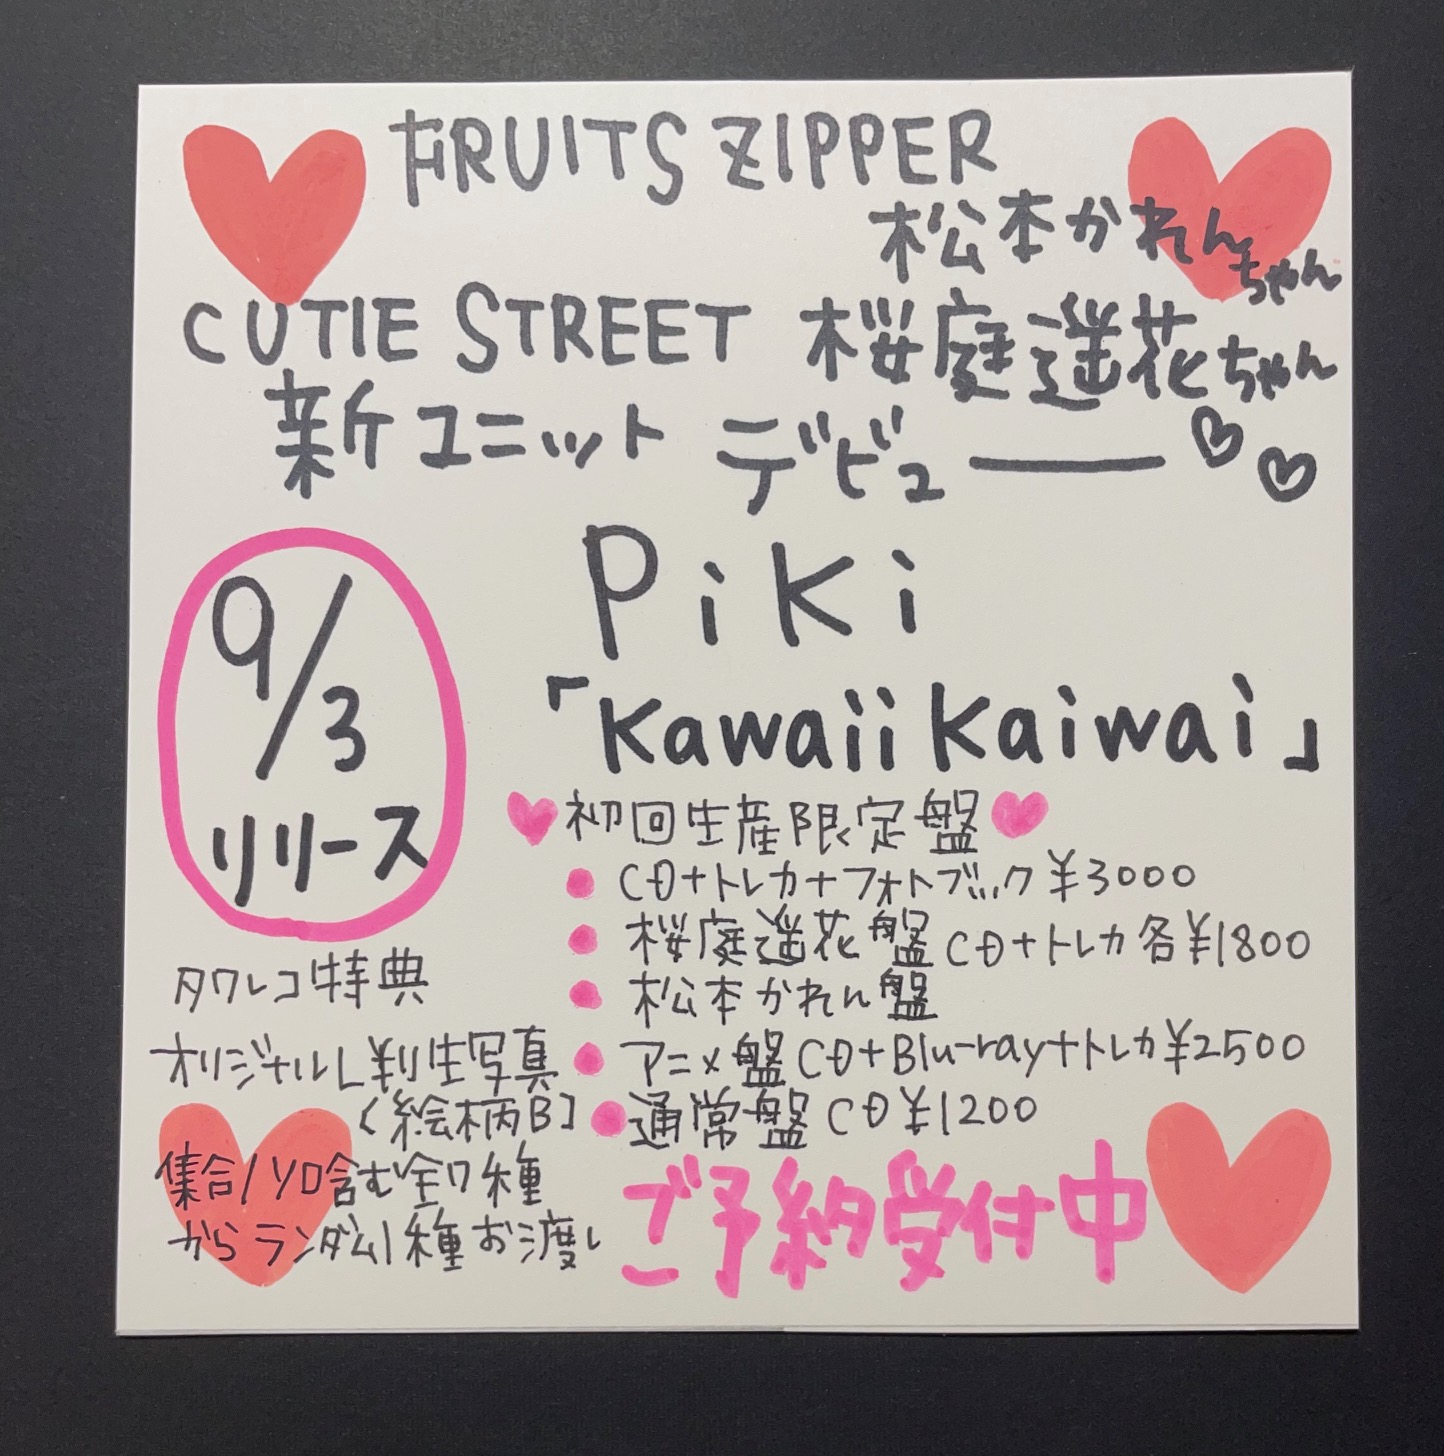 FRUITS ZIPPER
松本かれんちゃん
CUTIE STREET 桜庭遥花ちゃん
新ユニット デビュー♡♡
PiKi
「Kawaii Kaiwai」
9/3
リリース
初回生産限定盤
CD+トレカ+フォトブック ¥3000
桜庭遥花盤 CD+トレカ 各¥1800
松本かれん盤
アニメ盤 CD+Blu-ray+トレカ ¥2500
通常盤 CD ¥1200
タワレコ特典
オリジナルL判生写真
〈絵柄B]
集合/ソロ含む全7種
からランダム1種お渡し
ご予約受付中